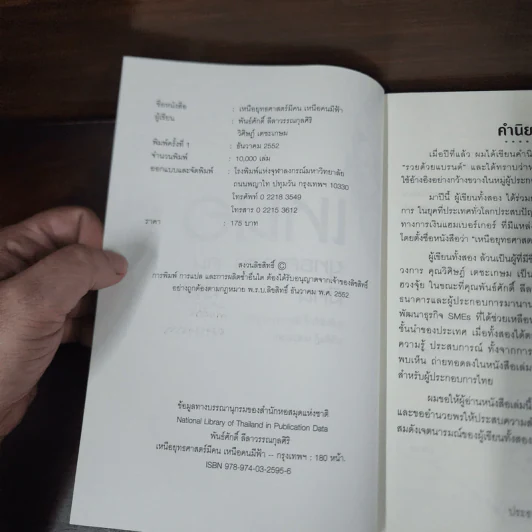 ชื่อหนังสือ : เหนือยุทธศาสตร์มีคน เหนือคนมีฟ้า
ผู้เขียน : พันธ์ศักดิ์ ลีลาวรรณกุลศิริ
วิศิษฎ์ เดชะเกษม
พิมพ์ครั้งที่ 1 : ธันวาคม 2552
จำนวนพิมพ์ : 10,000 เล่ม
ออกแบบและจัดพิมพ์ : โรงพิมพ์แห่งจุฬาลงกรณ์มหาวิทยาลัย
ถนนพญาไท ปทุมวัน กรุงเทพฯ 10330
โทรศัพท์ 0 2218 3549
โทรสาร 0 2215 3612
ราคา : 175 บาท
สงวนลิขสิทธิ์ ©
การพิมพ์ การแปล และการผลิตซ้ำอื่นใด ต้องได้รับอนุญาตจากเจ้าของลิขสิทธิ์
อย่างถูกต้องตามกฎหมาย พ.ร.บ.ลิขสิทธิ์ ธันวาคม พ.ศ. 2552
ข้อมูลทางบรรณานุกรมของสำนักหอสมุดแห่งชาติ
National Library of Thailand in Publication Data
พันธ์ศักดิ์ ลีลาวรรณกุลศิริ
เหนือยุทธศาสตร์มีคน เหนือคนมีฟ้า -- กรุงเทพฯ : 180 หน้า.
ISBN 978-974-03-2595-6
คำนิย
เมื่อปีที่แล้ว ผมได้เขียนคำนิ
"รวยด้วยแบรนด์" และได้ทราบว่าห
ใช้อ้างอิงอย่างกว้างขวางในหมู่ผู้ประก
มาปีนี้ ผู้เขียนทั้งสอง ได้ร่วม
การ ในยุคที่ประเทศทั่วโลกประสบปัญ
ทางการเงินแฮมเบอร์เกอร์ ที่มีแหล่
โดยตั้งชื่อหนังสือว่า "เหนือยุทธศาสต
ผู้เขียนทั้งสอง ล้วนเป็นผู้ที่มีชื่
วงการ คุณวิศิษฎ์ เดชะเกษม เป็น
ฮวงจุ้ย ในขณะที่คุณพันธ์ศักดิ์ ลีล
ธนาคารและผู้ประกอบการมานาน
พัฒนาธุรกิจ SMEs ที่ได้ช่วยเหลือ
ชั้นนำของประเทศ เมื่อทั้งสองได้
ความรู้ ประสบการณ์ ทั้งจากการ
พบเห็น ถ่ายทอดลงในหนังสือเล่ม
สำหรับผู้ประกอบการไทย
ผมขอให้ผู้อ่านหนังสือเล่มนี้
และขออำนวยพรให้ประสบความสำ
สมดังเจตนารมณ์ของผู้เขียนทั้งสอง
ประธ